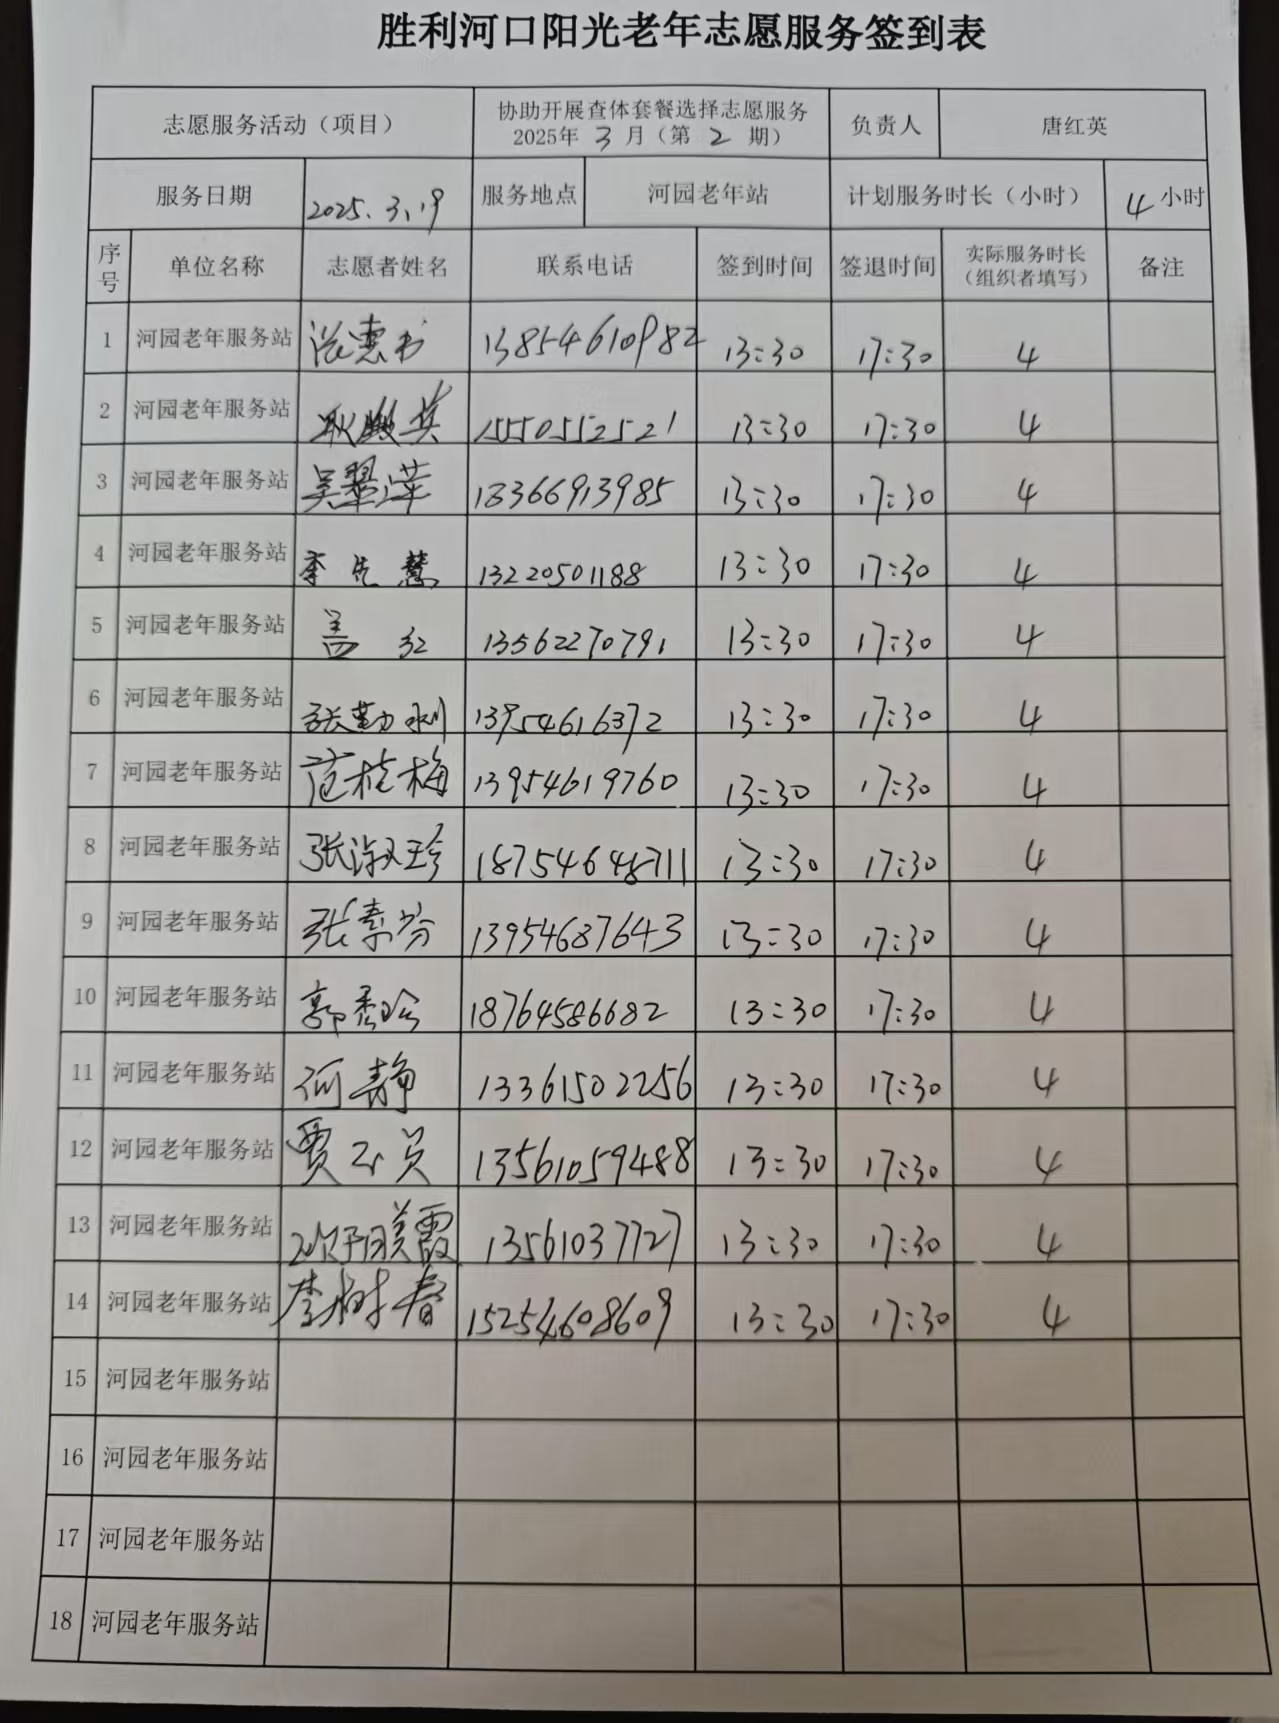 胜利河口阳光老年志愿服务签到表
志愿服务活动（项目） 协助开展查体套餐选择志愿服务 2025年 3 月（第 2 期） 负责人 唐红英
服务日期 2025.3.19 服务地点 河园老年站 计划服务时长（小时） 4 小时
序号 单位名称 志愿者姓名 联系电话 签到时间 签退时间 实际服务时长（组织者填写） 备注
1 河园老年服务站 13854610982 13:30 17:30 4
2 河园老年服务站 耿 英 15550552521 13:30 17:30 4
3 河园老年服务站 吴翠萍 18366913985 13:30 17:30 4
4 河园老年服务站 李先慧 13220501188 13:30 17:30 4
5 河园老年服务站 盖红 13562270791 13:30 17:30 4
6 河园老年服务站 张勤利 13954616372 13:30 17:30 4
7 河园老年服务站 范桂梅 13954619760 13:30 17:30 4
8 河园老年服务站 张淑珍 18754648711 13:30 17:30 4
9 河园老年服务站 张素芬 13954687643 13:30 17:30 4
10 河园老年服务站 郭秀玲 18764586682 13:30 17:30 4
11 河园老年服务站 何静 13361502256 13:30 17:30 4
12 河园老年服务站 贾 13561059488 13:30 17:30 4
13 河园老年服务站 美霞 13561037727 13:30 17:30 4
14 河园老年服务站 李树春 15254608609 13:30 17:30 4
15 河园老年服务站
16 河园老年服务站
17 河园老年服务站
18 河园老年服务站